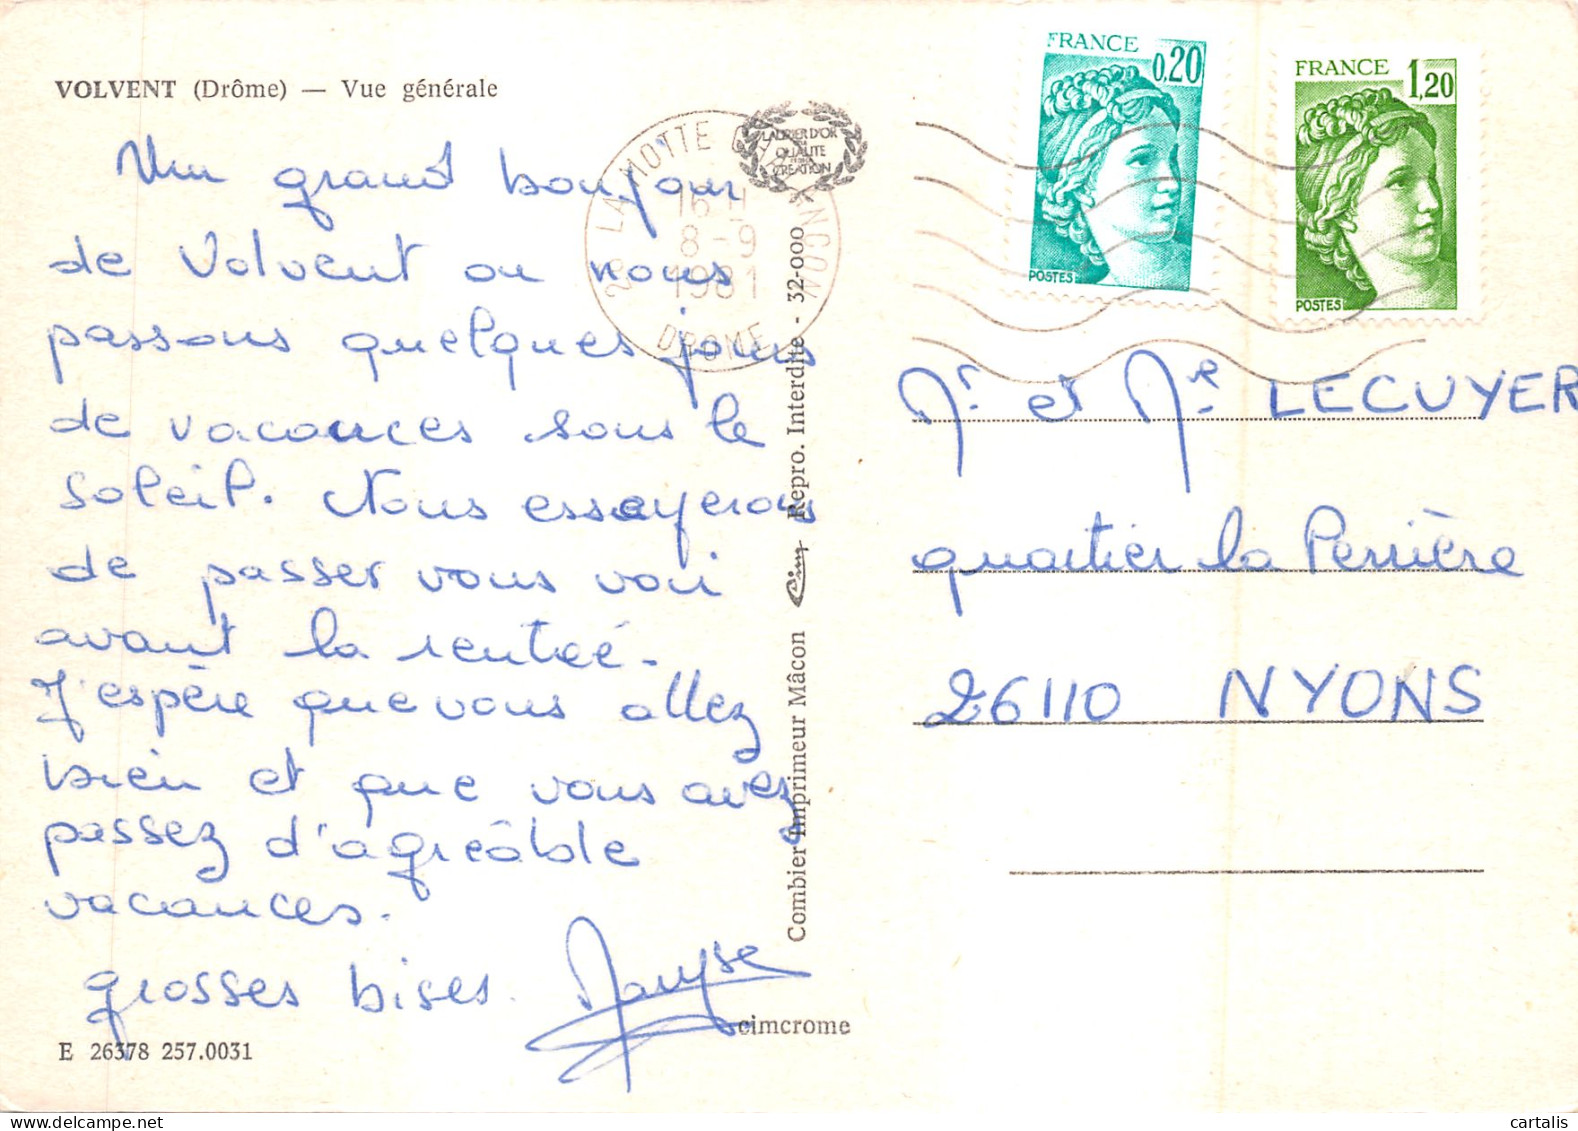 VOLVENT (Drôme) — Vue générale
Un grand bonjour
de Volvent ou nous
passons quelques jours
de vacances sous le
soleil. Nous essayerons
de passer vous voir
avant la rentreé.
J'espère que vous allez
bien et que vous avez
passez d'agréable
vacances.
grosses bises. Maryse
E 26378 257.0031
cimcrome
Combier Imprimeur Mâcon Cim Repro. Interdite - 32-000
LAURIER D'OR
DE LA
QUALITE
CREATION
26 LA MOTTE
16 H
8 - 9
1981
DROME
FRANCE
0,20
POSTES
FRANCE
1,20
POSTES
Mr et Me LECUYER
quartier la Perrière
26110 NYONS
cartalis